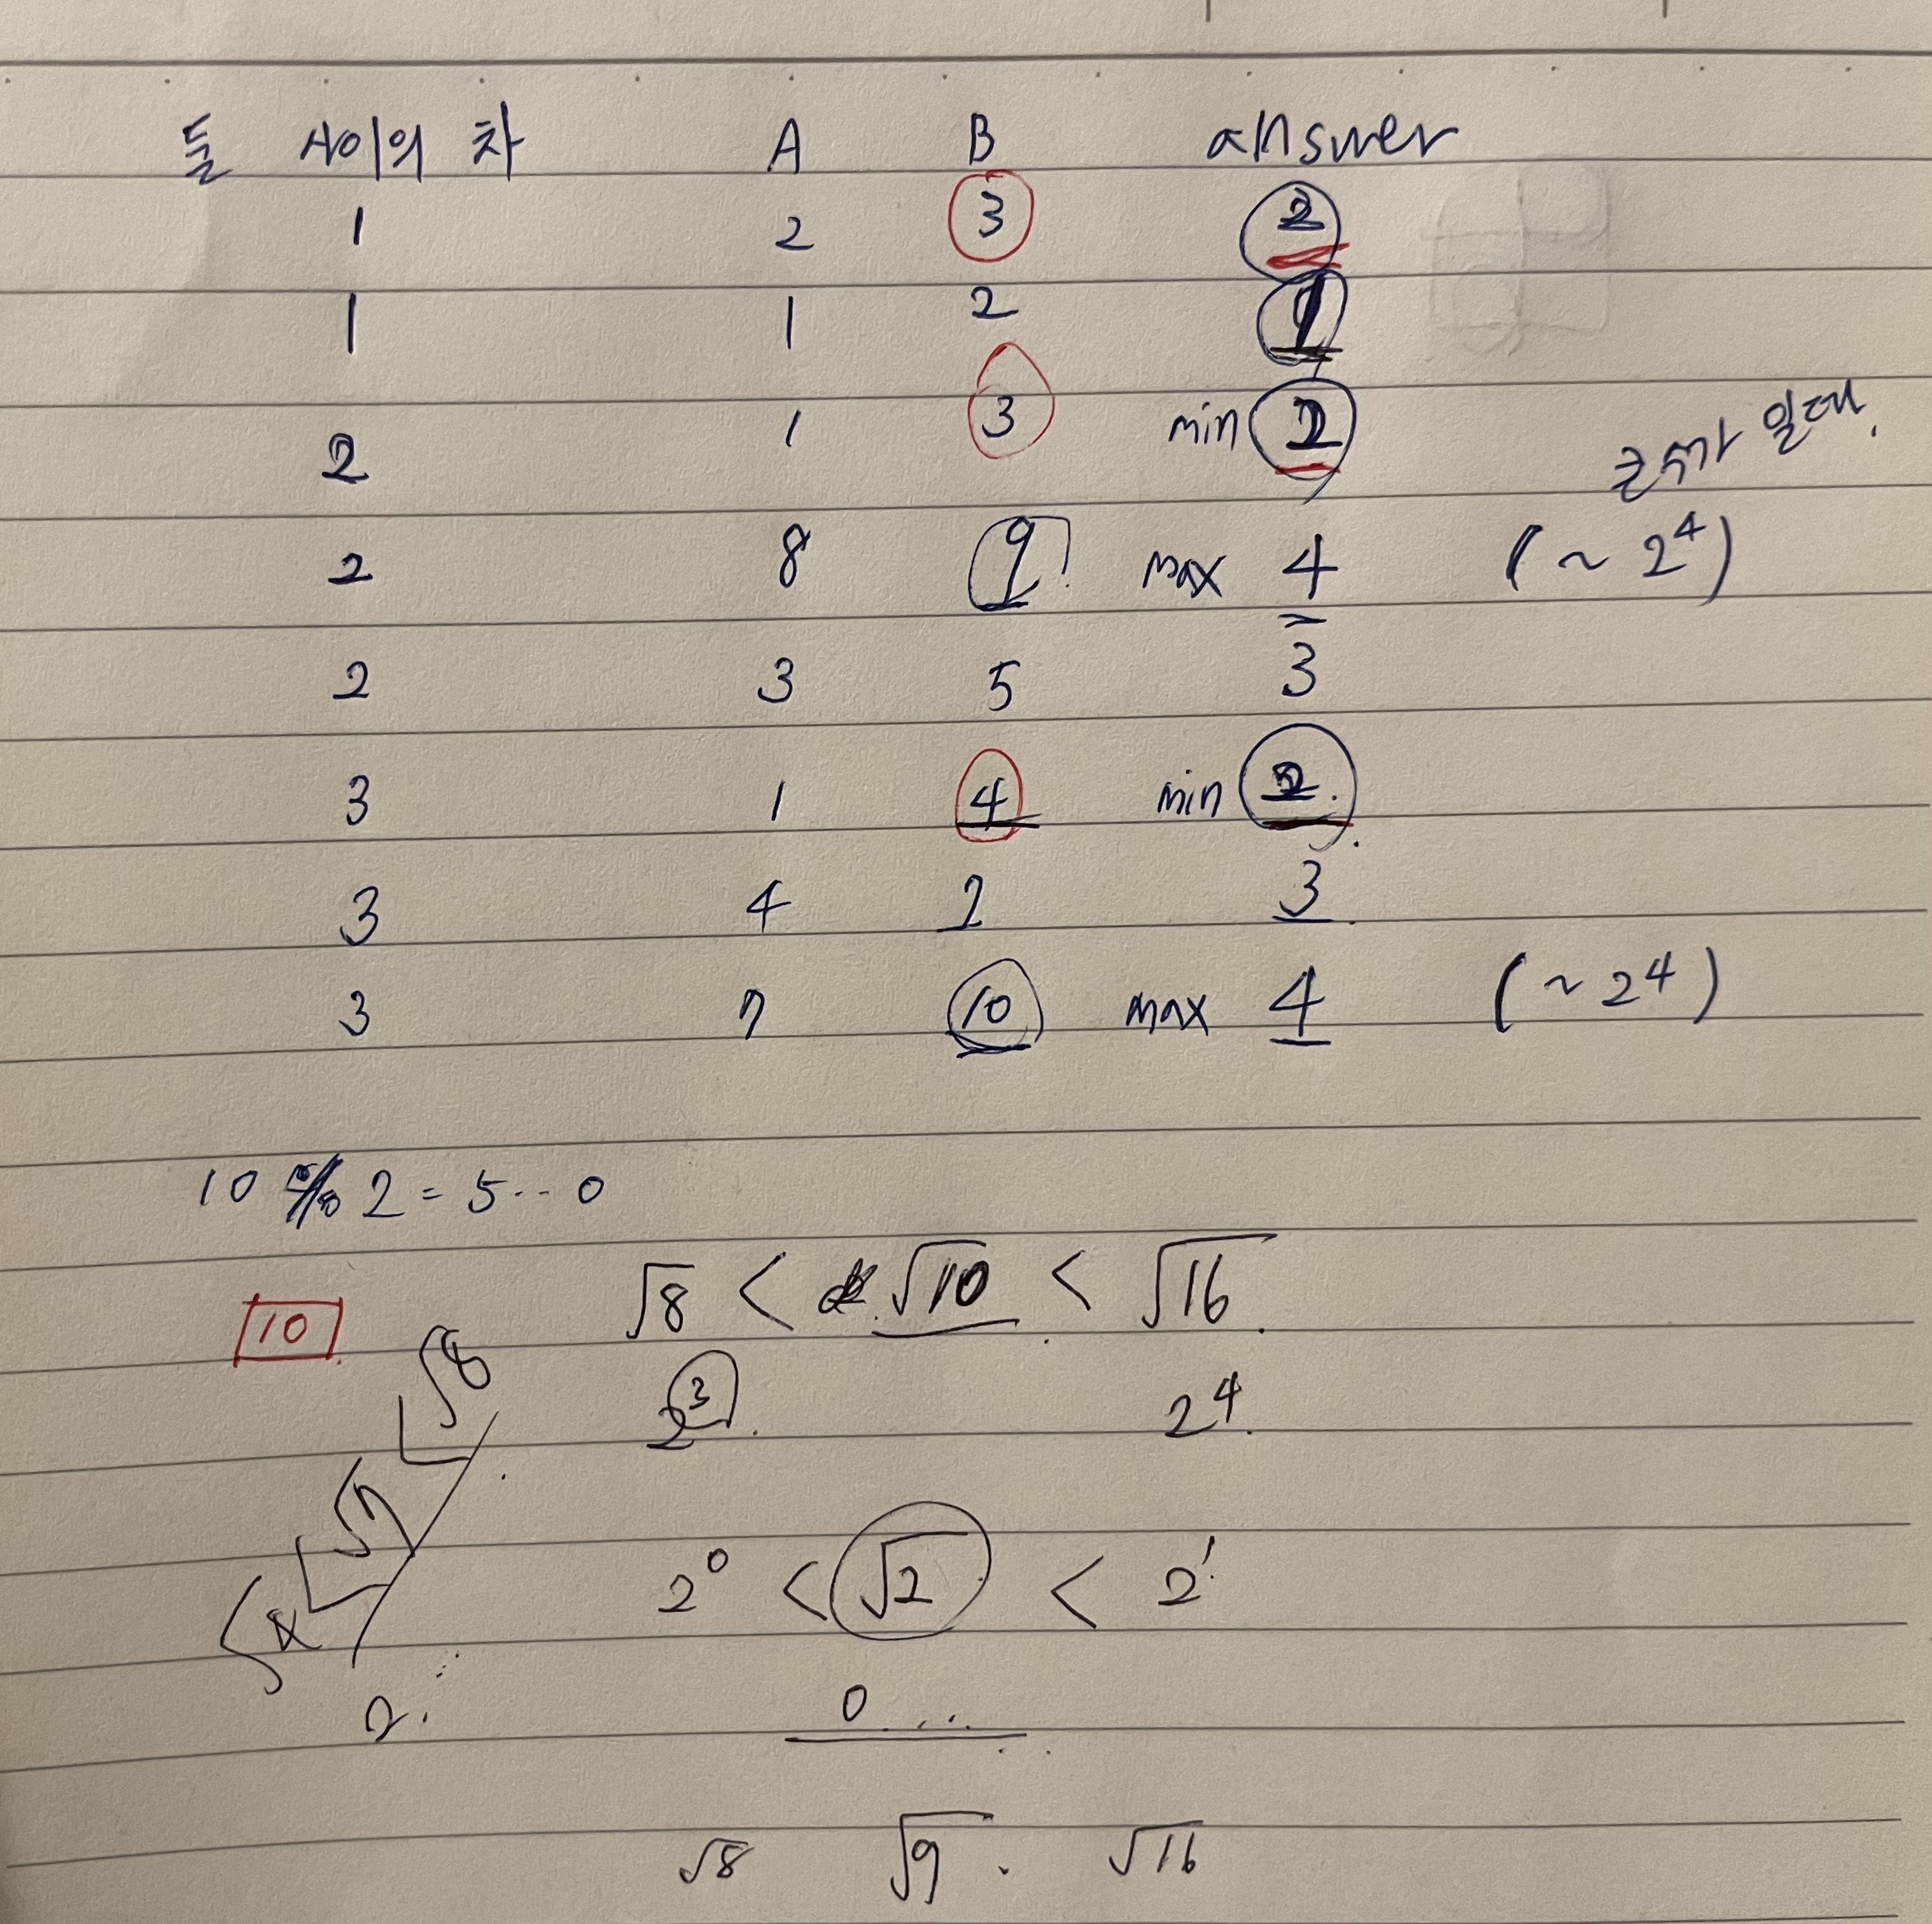 둘 사이의 차 A B answer
1 2 3 2
1 1 2 1
2 1 3 min 2
일때.
2 8 9 max 4 (~ 2⁴)
2 3 5 3
3 1 4 min 2.
3 4 7 3.
3 7 10 max 4 (~ 2⁴)
10 % 2 = 5 ... 0
10 √8 < √10 < √16.
√8
2³. 2⁴.
√7
2⁰ < √2 < 2¹
2. 0 ...
√8 √9. √16